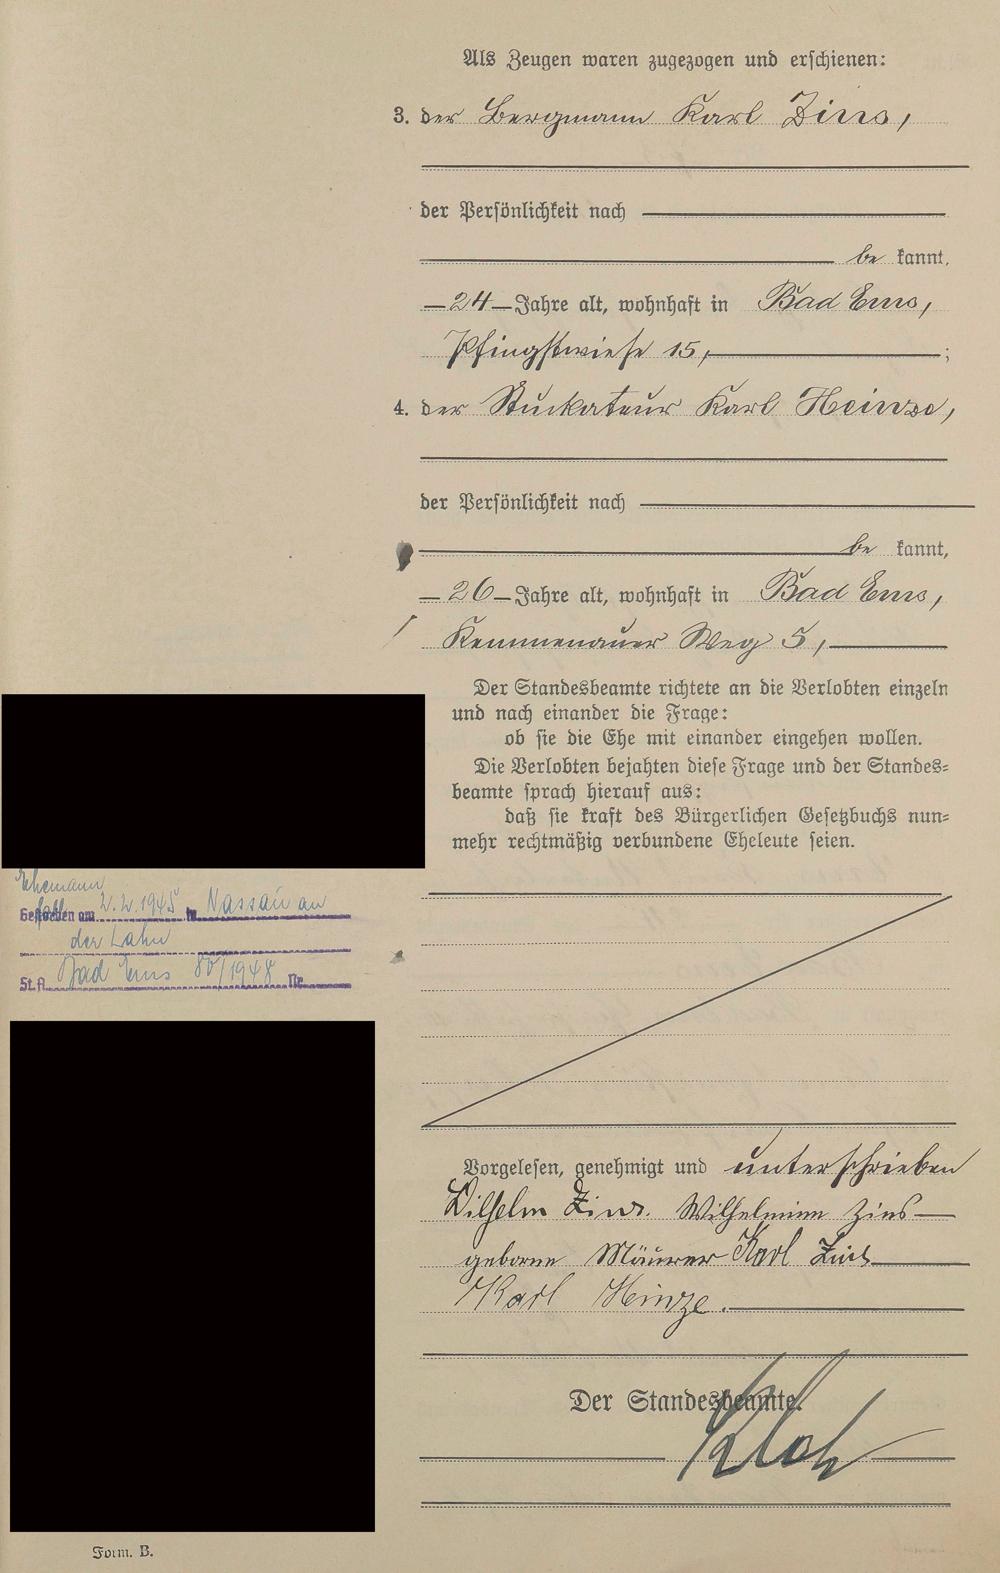 Als Zeugen waren zugezogen und erschienen:
3. der Bergmann Karl Zins,
der Persönlichkeit nach
be kannt,
24 Jahre alt, wohnhaft in Bad Ems,
Pfingstwiese 15, ;
4. der Stuckateur Karl Heinze,
der Persönlichkeit nach
be kannt,
26 Jahre alt, wohnhaft in Bad Ems,
Kemmenauer Weg 5,
Der Standesbeamte richtete an die Verlobten einzeln
und nach einander die Frage:
ob sie die Ehe mit einander eingehen wollen.
Die Verlobten bejahten diese Frage und der Standes-
beamte sprach hierauf aus:
daß sie kraft des Bürgerlichen Gesetzbuchs nun-
mehr rechtmäßig verbundene Eheleute seien.
Ehemann
Gestorben am 2.2.1945 in Nassau an
der Lahn
St.A. Bad Ems 80/1948 Nr.
Vorgelesen, genehmigt und unterschrieben
Wilhelm Zins. Wilhelmine Zins
geborne Mäurer Karl Zins
Karl Heinze.
Der Standesbeamte.
Form. B.